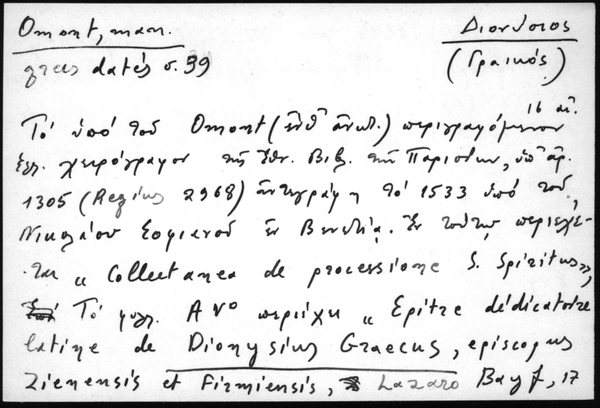 Omont, man. Διονύσιος
grecs datés σ. 39 (Γραικός)
16 αἰ.
Τό ὑπό τοῦ Omont (ἔνθ' ἀνωτ.) περιγραφόμενον
ἑλλ. χειρόγραφον τῆς Ἐθν. Βιβλ. τῆς Παρισίων, ὑπ' ἀρ.
1305 (Regius 2968) ἀντεγράφη τό 1533 ὑπό τοῦ
Νικολάου Σοφιανοῦ ἐν Βενετίᾳ. Ἐν τούτῳ περιέχε-
ται „Collectanea de processione S. Spiritus„,
Τό φυλλ. A vº περιέχει „Epitre dédicatoire
latine de Dionysius Graecus, episcopus
Zienensis et Firmiensis, Lazaro Bayf, 17